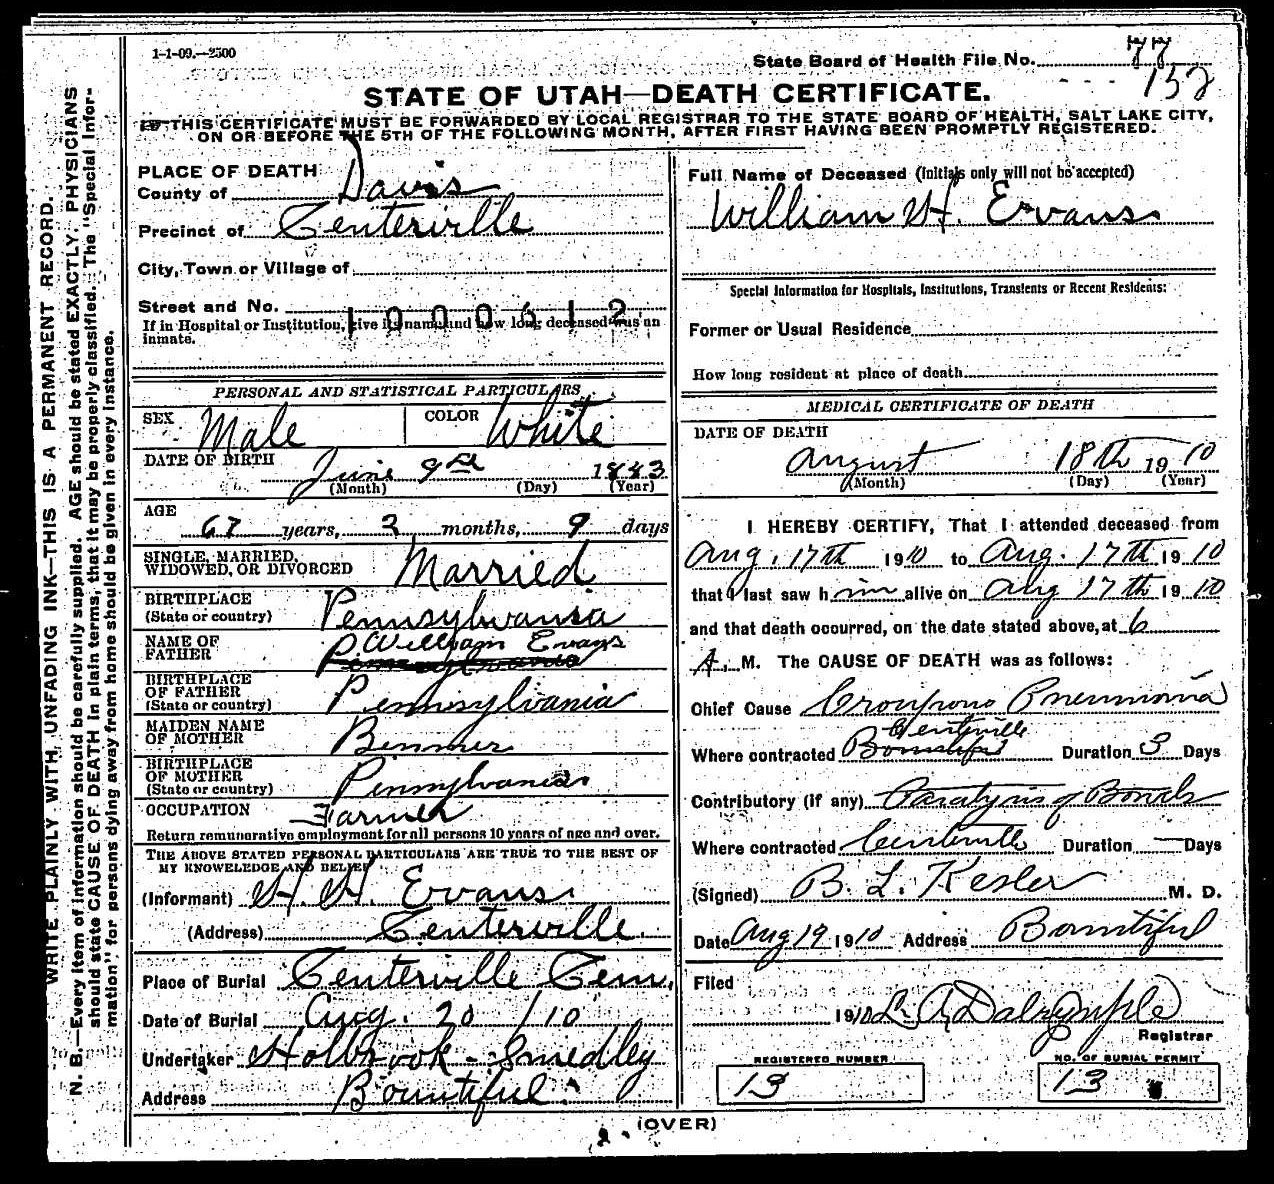 1-1-09.—2500
State Board of Health File No. 77
152
STATE OF UTAH—DEATH CERTIFICATE.
THIS CERTIFICATE MUST BE FORWARDED BY LOCAL REGISTRAR TO THE STATE BOARD OF HEALTH, SALT LAKE CITY,
ON OR BEFORE THE 5TH OF THE FOLLOWING MONTH, AFTER FIRST HAVING BEEN PROMPTLY REGISTERED.
WRITE PLAINLY WITH UNFADING INK—THIS IS A PERMANENT RECORD.
N. B.—Every item of information should be carefully supplied. AGE should be stated EXACTLY. PHYSICIANS
should state CAUSE OF DEATH in plain terms, that it may be properly classified. The "Special Infor-
mation" for persons dying away from home should be given in every instance.
PLACE OF DEATH
County of Davis
Precinct of Centerville
City, Town or Village of
Street and No.
1000612
If in Hospital or Institution, give its name and how long deceased was an
inmate.
PERSONAL AND STATISTICAL PARTICULARS
SEX Male COLOR White
DATE OF BIRTH June 9th 1843
(Month) (Day) (Year)
AGE
67 years, 2 months, 9 days
SINGLE, MARRIED,
WIDOWED, OR DIVORCED Married
BIRTHPLACE
(State or country) Pennsylvania
NAME OF
FATHER William Evans
BIRTHPLACE
OF FATHER
(State or country) Pennsylvania
MAIDEN NAME
OF MOTHER
BIRTHPLACE
OF MOTHER
(State or country) Pennsylvania
OCCUPATION Farmer
Return remunerative employment for all persons 10 years of age and over.
THE ABOVE STATED PERSONAL PARTICULARS ARE TRUE TO THE BEST OF
MY KNOWLEDGE AND BELIEF
(Informant) H. H. Evans
(Address) Centerville.
Place of Burial Centerville Cem.
Date of Burial Aug. 20 /10
Undertaker Holbrook - Smedley
Address Bountiful
Full Name of Deceased (Initials only will not be accepted)
William H. Evans
Special Information for Hospitals, Institutions, Transients or Recent Residents:
Former or Usual Residence
How long resident at place of death
MEDICAL CERTIFICATE OF DEATH
DATE OF DEATH
August 18th 1910
(Month) (Day) (Year)
I HEREBY CERTIFY, That I attended deceased from
Aug. 17th 1910 to Aug. 17th 1910
that I last saw him alive on Aug 17th 1910
and that death occurred, on the date stated above, at 6
A. M. The CAUSE OF DEATH was as follows:
Chief Cause Croupous Pneumonia
Centerville
Where contracted Bountiful Duration 3 Days
Contributory (if any) Paralysis of Bowels
Where contracted Centerville Duration — Days
(Signed) B. L. Kesler M. D.
Date Aug 19 1910 Address Bountiful
Filed
1910 L. A. Dalrymple
Registrar
REGISTERED NUMBER
13
NO. OF BURIAL PERMIT
13
(OVER)